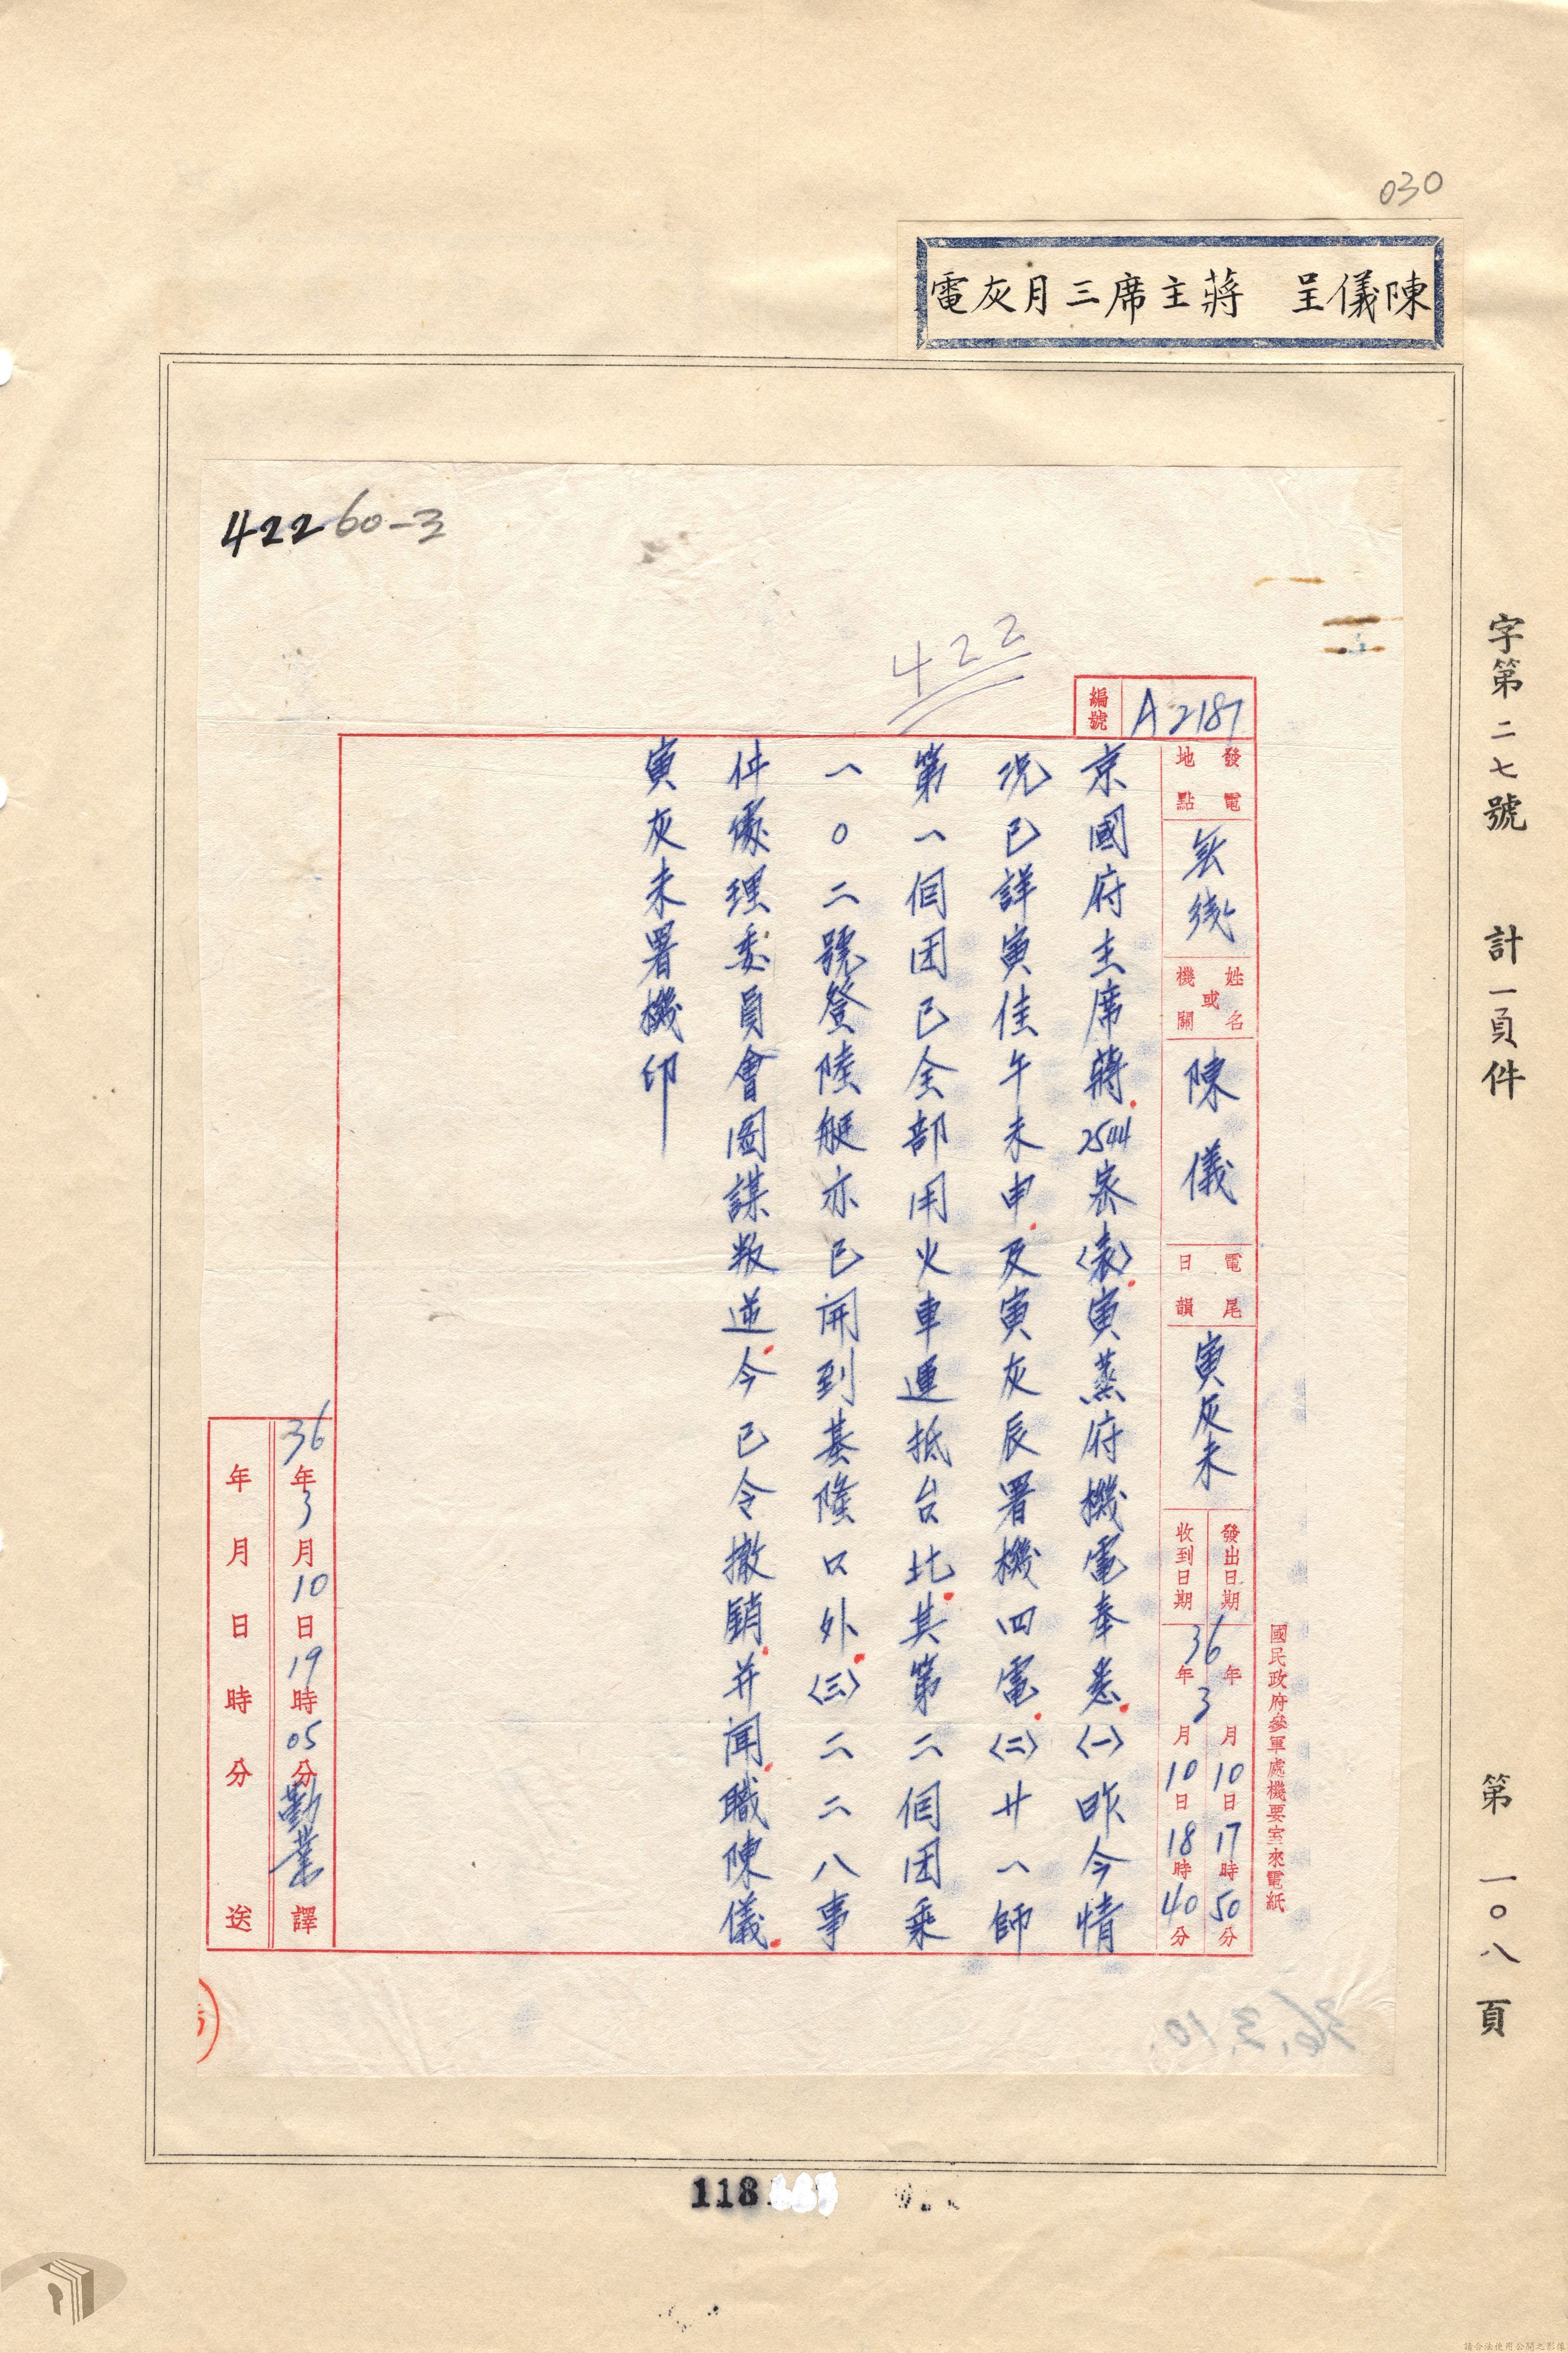 030
陳儀呈　蔣主席三月灰電
字第二七號　計一頁件　第一〇八頁
42260-3
422
編號 A2187
國民政府參軍處機要室來電紙
發電地點 無線
姓名或機關 陳儀
電尾日韻 寅灰未
發出日期 36年3月10日17時50分
收到日期 年月10日18時40分
京國府主席蔣2544密〈表〉寅蒸府機電奉悉〈一〉昨今情
況已詳寅佳午未申及寅灰辰署機四電〈二〉廿一師
第一個团已全部用火車運抵台北其第二個团乘
一〇二號登陸艇亦已開到基隆口外〈三〉二二八事
件處理委員會圖謀叛逆今已令撤銷并聞職陳儀
寅灰未署機印
36年3月10日19時05分勤業譯
年月日時分送
36.3.10.
118
請合法使用公開之影像